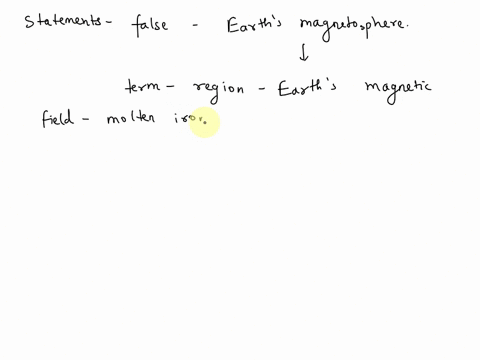 Statements - false - Earth's magnetosphere.
↓
term - region - Earth's magnetic
field - molten iron